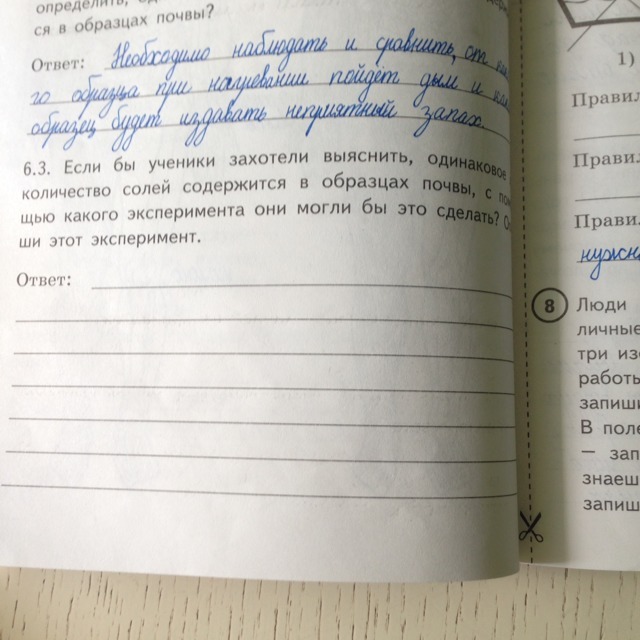 определить,
ся в образцах почвы?
Ответ: Необходимо наблюдать и сравнить, от
го образца при нагревании пойдет дым и
образец будет издавать неприятный запах.
6.3. Если бы ученики захотели выяснить, одинаковое
количество солей содержится в образцах почвы, с по
щью какого эксперимента они могли бы это сделать? О
ши этот эксперимент.
Ответ:
1)
Правил
Правил
Прави
нужн
8 Люди
личные
три изо
работы
запиши
В поле
— зап
знаеш
запиш